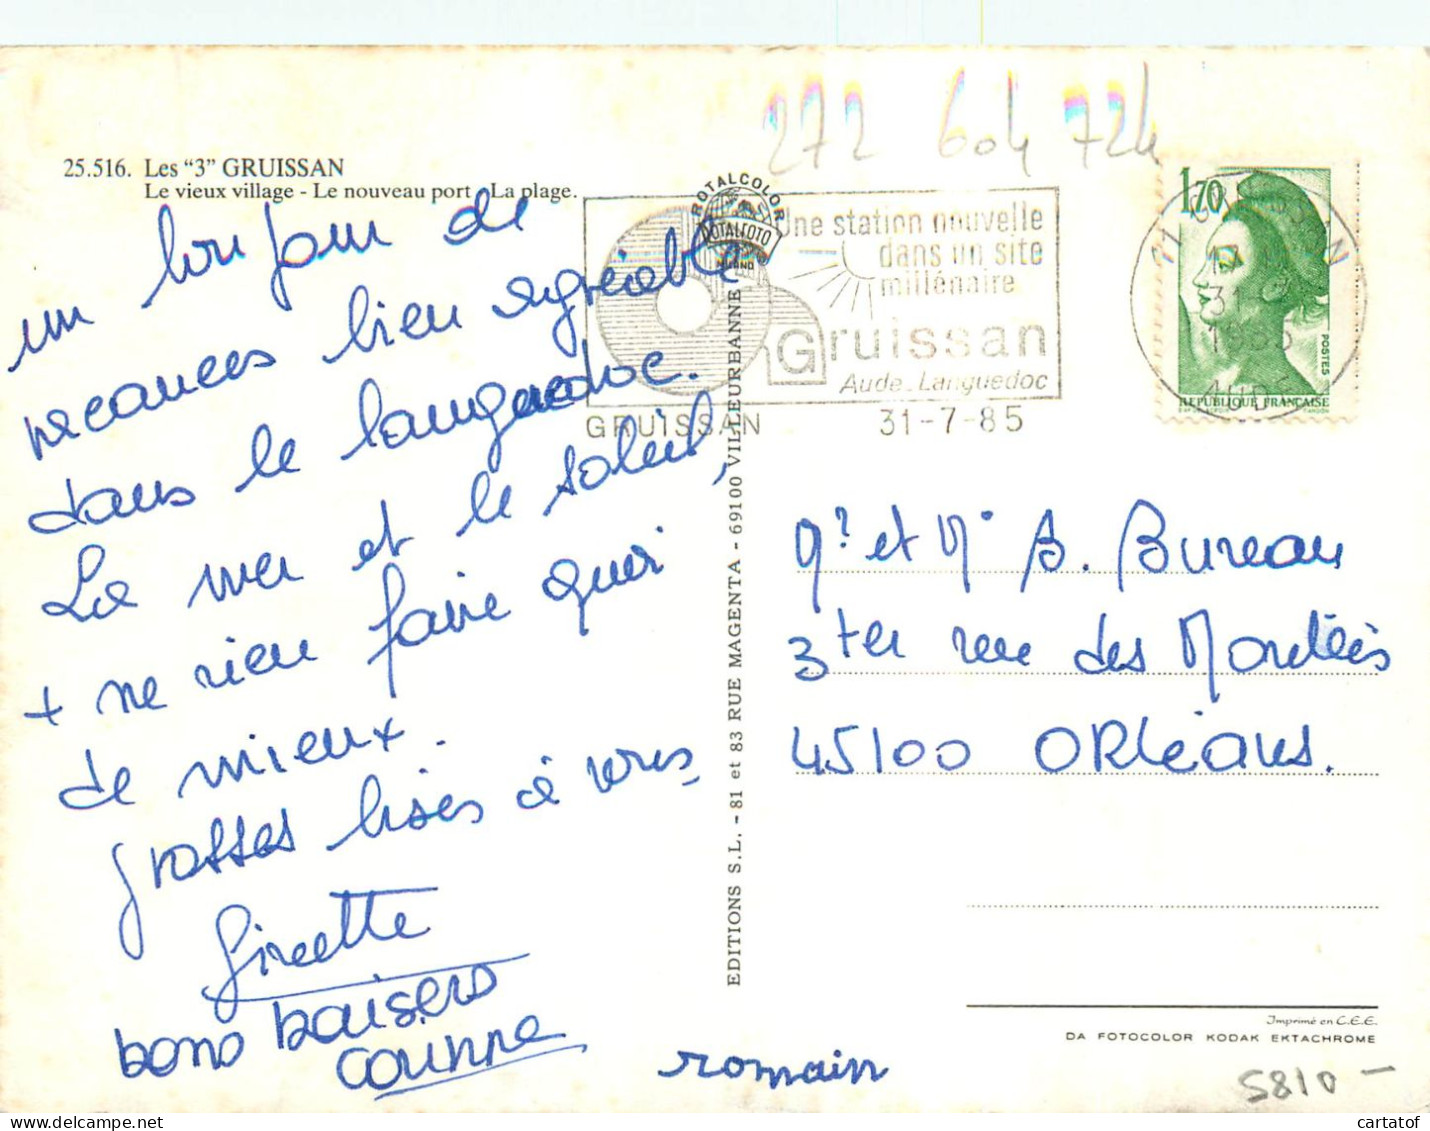 272 604 724
25.516. Les “3” GRUISSAN
Le vieux village - Le nouveau port - La plage.
un bonjour de
vacances bien agréable
dans le languedoc.
La mer et le soleil,
+ ne rien faire quoi
de mieux.
grosses bises à vous
Ginette
bons baisers
corinne
romain
ROTALCOLOR
ROTALFOTO
MILANO
Une station nouvelle
dans un site
millénaire
Gruissan
Aude_Languedoc
GRUISSAN
31-7-85
1,70
POSTES
REPUBLIQUE FRANÇAISE
11 GRUISSAN
31
1985
AUDE
EDITIONS S.L. - 81 et 83 RUE MAGENTA - 69100 VILLEURBANNE
Mr et Me B. Bureau
3 ter rue des
45100 ORLéans.
Imprimé en C.E.E.
DA FOTOCOLOR KODAK EKTACHROME
5810 -
cartatof